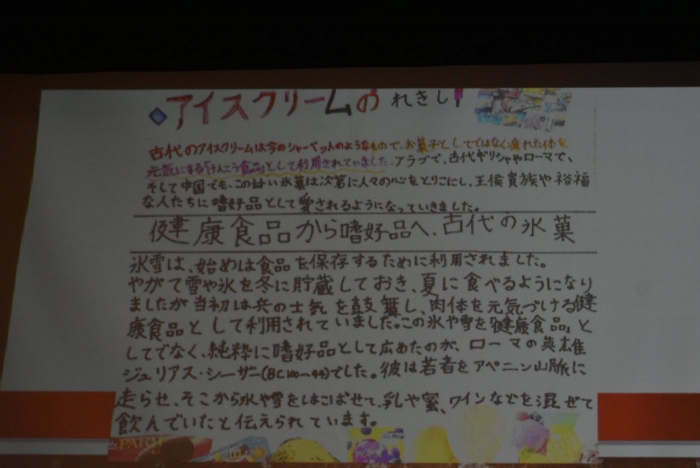 アイスクリームの れきし!
古代のアイスクリームは今のシャーベットのようなもので、お菓子としてではなく疲れた体を、
元気にする「けんこう食品」として利用されていました。アラブで、古代ギリシャやローマで、
そして中国でも、この甘い氷菓は次第に人々の心をとりこにし、王侯貴族や裕福
な人たちに嗜好品として愛されるようになっていきました。
健康食品から嗜好品へ、古代の氷菓
氷雪は、始めは食品を保存するために利用されました。
やがて雪や氷を冬に貯蔵しておき、夏に食べるようになり
ましたが当初は兵の士気を鼓舞し、肉体を元気づける健
康食品として利用されていました。この氷や雪を「健康食品」と
してでなく、純粋に嗜好品として広めたのが、ローマの英雄
ジュリアス・シーザー(BC100~44)でした。彼は若者をアペニン山脈に
走らせ、そこから氷や雪をはこばせて、乳や蜜、ワインなどを混ぜて
飲んでいたと伝えられています。